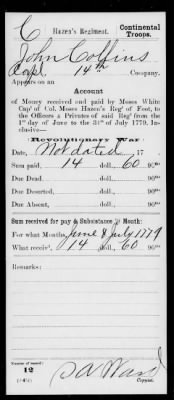 C Hazen's Regiment. Continental Troops.
John Collins
Capt. 14th Company.
Appears on an
Account
of Money received and paid by Moses White
Cap' of Col. Moses Hazen's Reg' of Foot, to
the Officers & Privates of said Reg' from the
1st day of June to the 31st of July 1779. In-
clusive—
Revolutionary War.
Date, Not dated, 17 .
Sum paid, 14 doll., 60 90ths
Due Dead, doll., 90ths
Due Deserted, doll., 90ths
Due Absent, doll., 90ths
Sum received for pay & Subsistance Month:
For what Months, June & July 1779
What receiv'd, 14 doll., 60 90ths
Remarks:
Number of record:
12
S A Ward
Copyist.